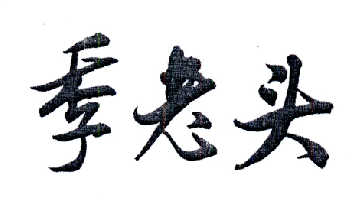 季老头